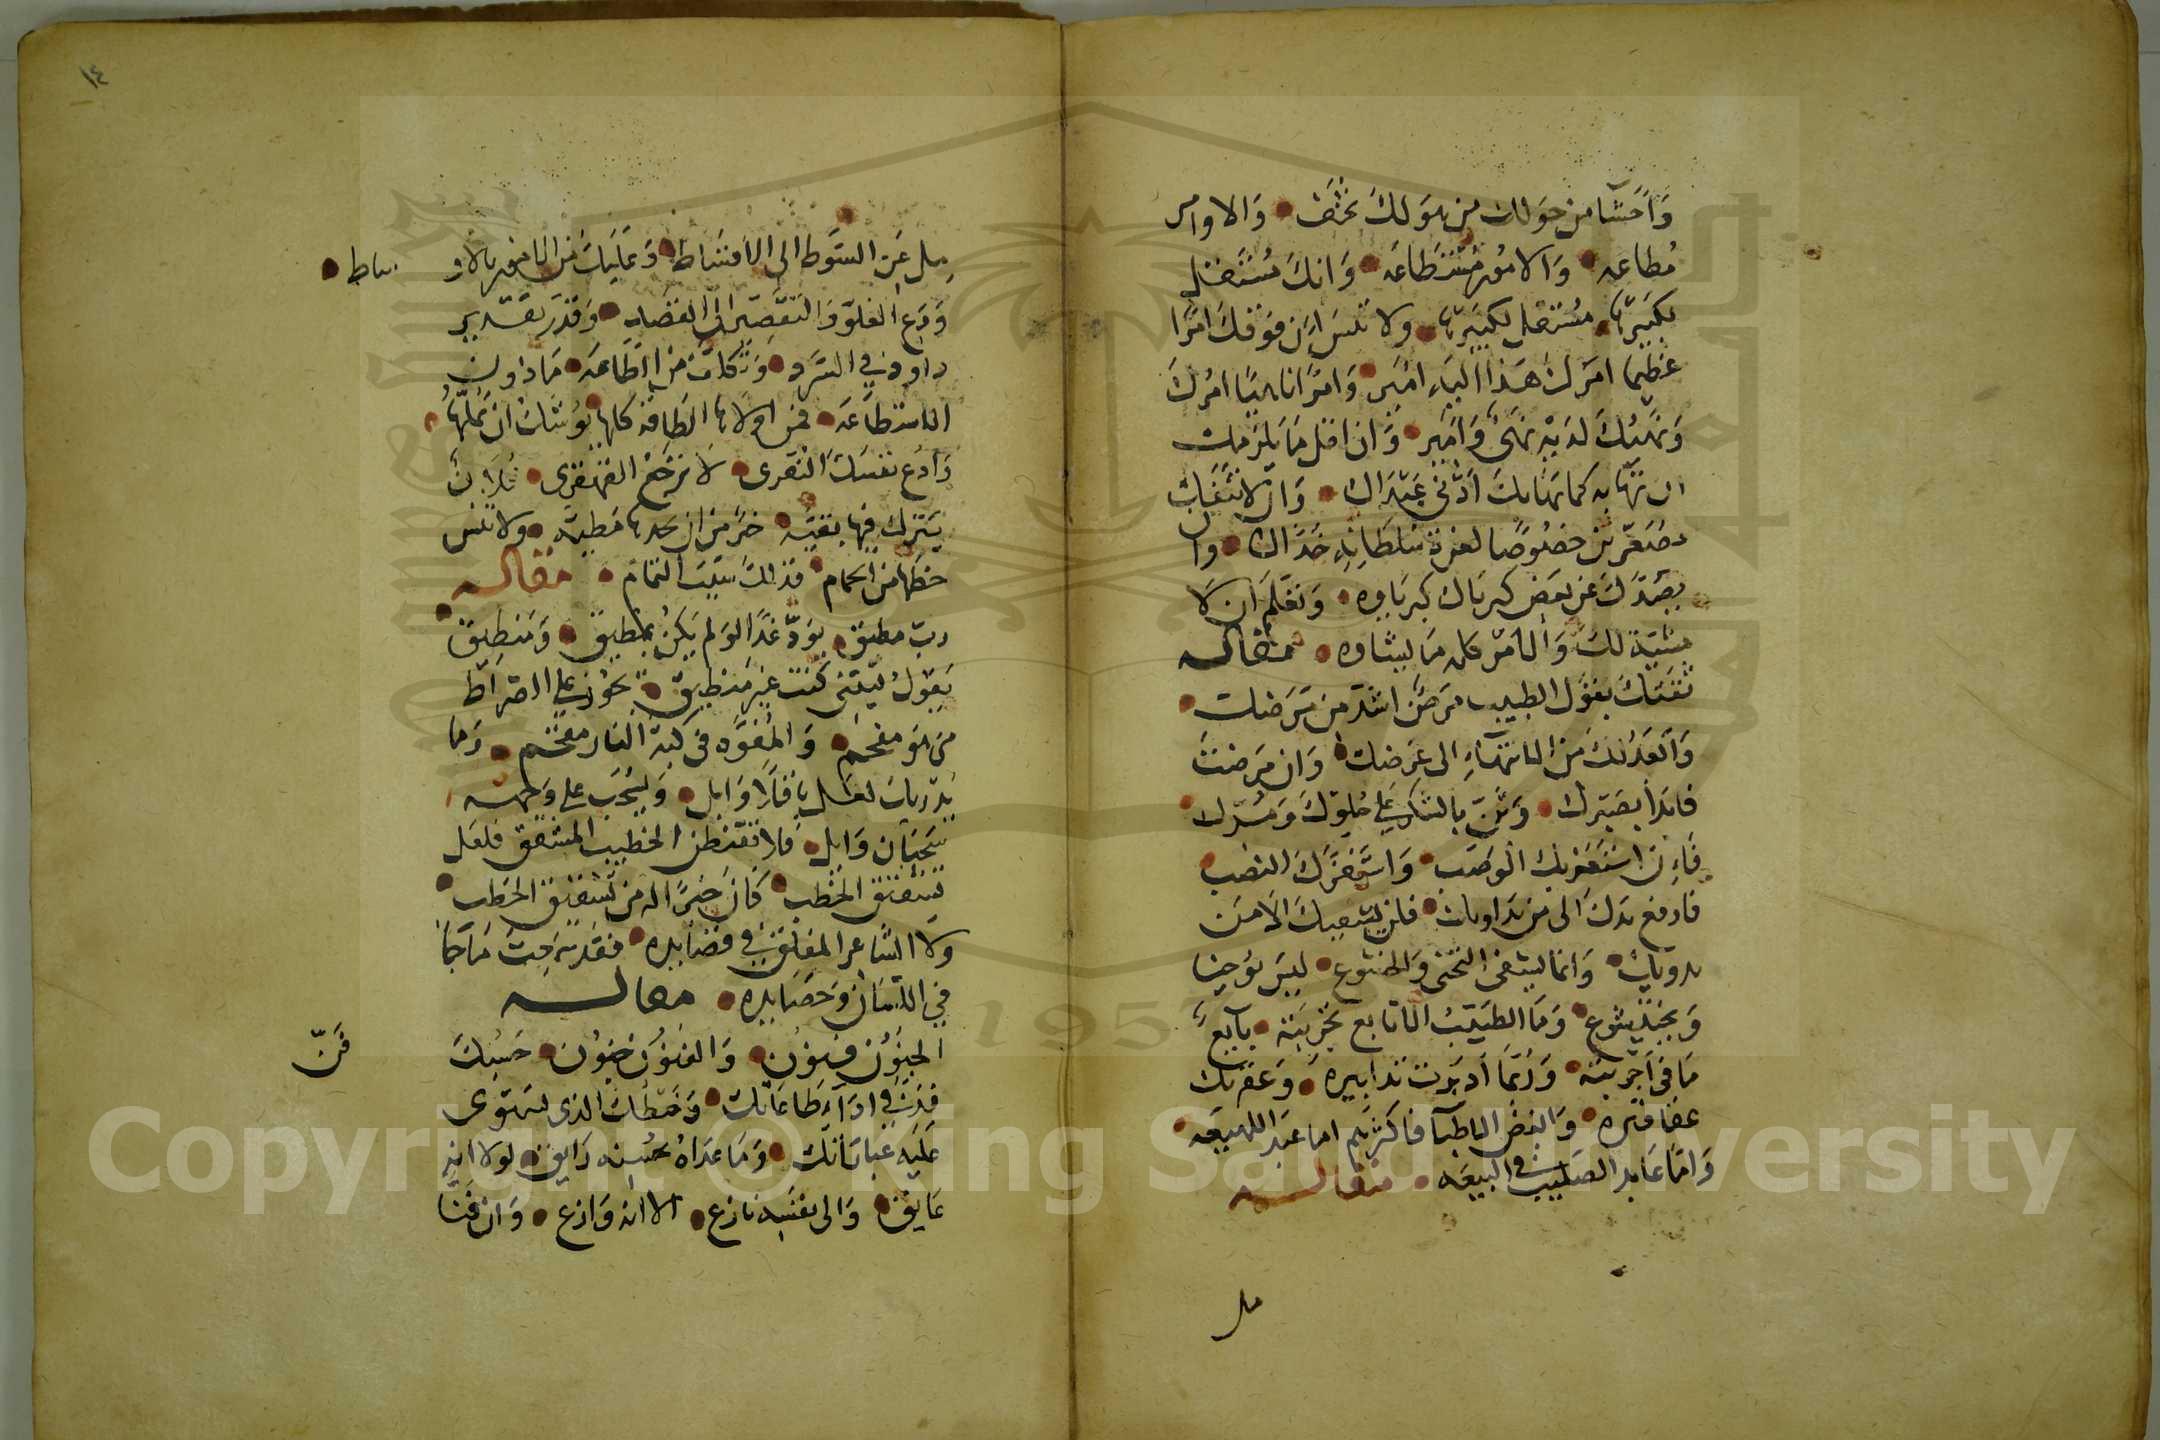 وَاَحَشَامن حَولك من هَولكَ تختَف • وَالاوامر
مُطاعه • وَالامُور مُستَطَاعَه • وَانكَ مُستَقل
بكَبيرَتها • مُستَقل لكبَيرتها • ولا تنسَ اَن فوَقكَ امرًا
عَظيما امَركَ هَذا اليَه امَير • وَامرًا ناهيًا امُركَ
وَنَهيُكَ لدَيْه نَهىٌ وَامَير • وَان اقل مَا يلزَمك
ان تهَابه كما يهَابكَ اَدْنى عَبيدَاك • وَان لا تنَفك
خضُوعًا لعزة سُلطَانِه خدَاك • وان
يصَدَّكَ عَن بعَض كبريَاك كبريَاوه • وَتعَلَم اَن لاَ
مشيَة لكَ وَالامَر كله مَا يشاوه • مقاله
ثقَتكَ بقوَل الطبيب مَرضٌ اشدَ من مَرضك •
وَابعَدُ لكَ مَن الانتهَاءِ الى غرَضك • وَان مَرضتَ
فابَدأ بصَبرَك • وَثنّ بالشكر عَلى حُلوّكَ وَمُرّك •
فَاِن استَفَزبكَ الوَصَب • وَاستَفزَّكَ النصَب
فادفع بَدنكَ الى مَن يدَاويك • فلن يشفيكَ الا مَن
يدويكَ • وَانما يشفى التحنّى وَالخشوُع • ليسَ يوُحنا
وَبختيشوع • وَمَا الطبَيبُ الا تابع تجرَبَته • بايع
مَا فى اجَربَته • وَرُبَّمَا اَدبَرت تدابيره • وَعقرَتك
عقاقيره • وَابغض الاطبآ فاكثرهُم اما عبَد الطبيعَه •
وَامّا عَابد الصَليب في البيعَه • مقاله
مل
١٤
مِل عَن السَّوَط الى الاَمشَاط • وَعَليَكَ مَن الامُور بالاو
ساط •
وَدَع الغلوّ وَالتقصِير الى القصَد • وَقدَر تقَدير
داودَ في السَّرد • وَتكلف مَن الطاعَه • مَا دوُن
الاستطاعَه • فمن اولاهَا الطاقة كلها يوُشكُ اَن يمَلهَا •
وَادُع نفسَكَ النقرى • لا ترَجع القهقرى • فلاَن
يَترك فيها بقيَّه • خيرٌ من ان يجدها مَطيه • ولا تنس
حَظها مَن الجمام • فذلكَ سَبَب التمام • مقاله
ربّ مطيق • يَوَدّ غدًا لو لم يكنُ بمنُطيق • وَمَنطيق
يقولُ ليتنى كنت غيَر مَنطيق • يجوُز علي الصّراط
مَن هو مفحَم • وَالمُفوَّه في كبَة النار مفحَم • وَما
يُدريك لعَل باقلاً وَابل • وَيسُحَب على وَجهه
سَحبَان وَابل • فلا تغبطن الخطيب المشقق فلعَل
تشقيق الخَطب • كانَ خيرًا له من تشقيق الخطَب •
وَلا الشاعر المفلق في قصَايده • فقدَ
في اللّسان وَحصَايده • مقاله
الجنوُن فنوُن • وَالفنوُن جنوُن • حَسبُكَ
فنّ
فن في ادَاءِ طاعَاتك • وَخطك الذى تستوى
عَليه عبادَاتك • وَمَا عَدَاهُ بحُسنه رَايق • لولا انه
عَايق • وَالى نفَسه نازع • الا انه وَازع • وَان فنًا